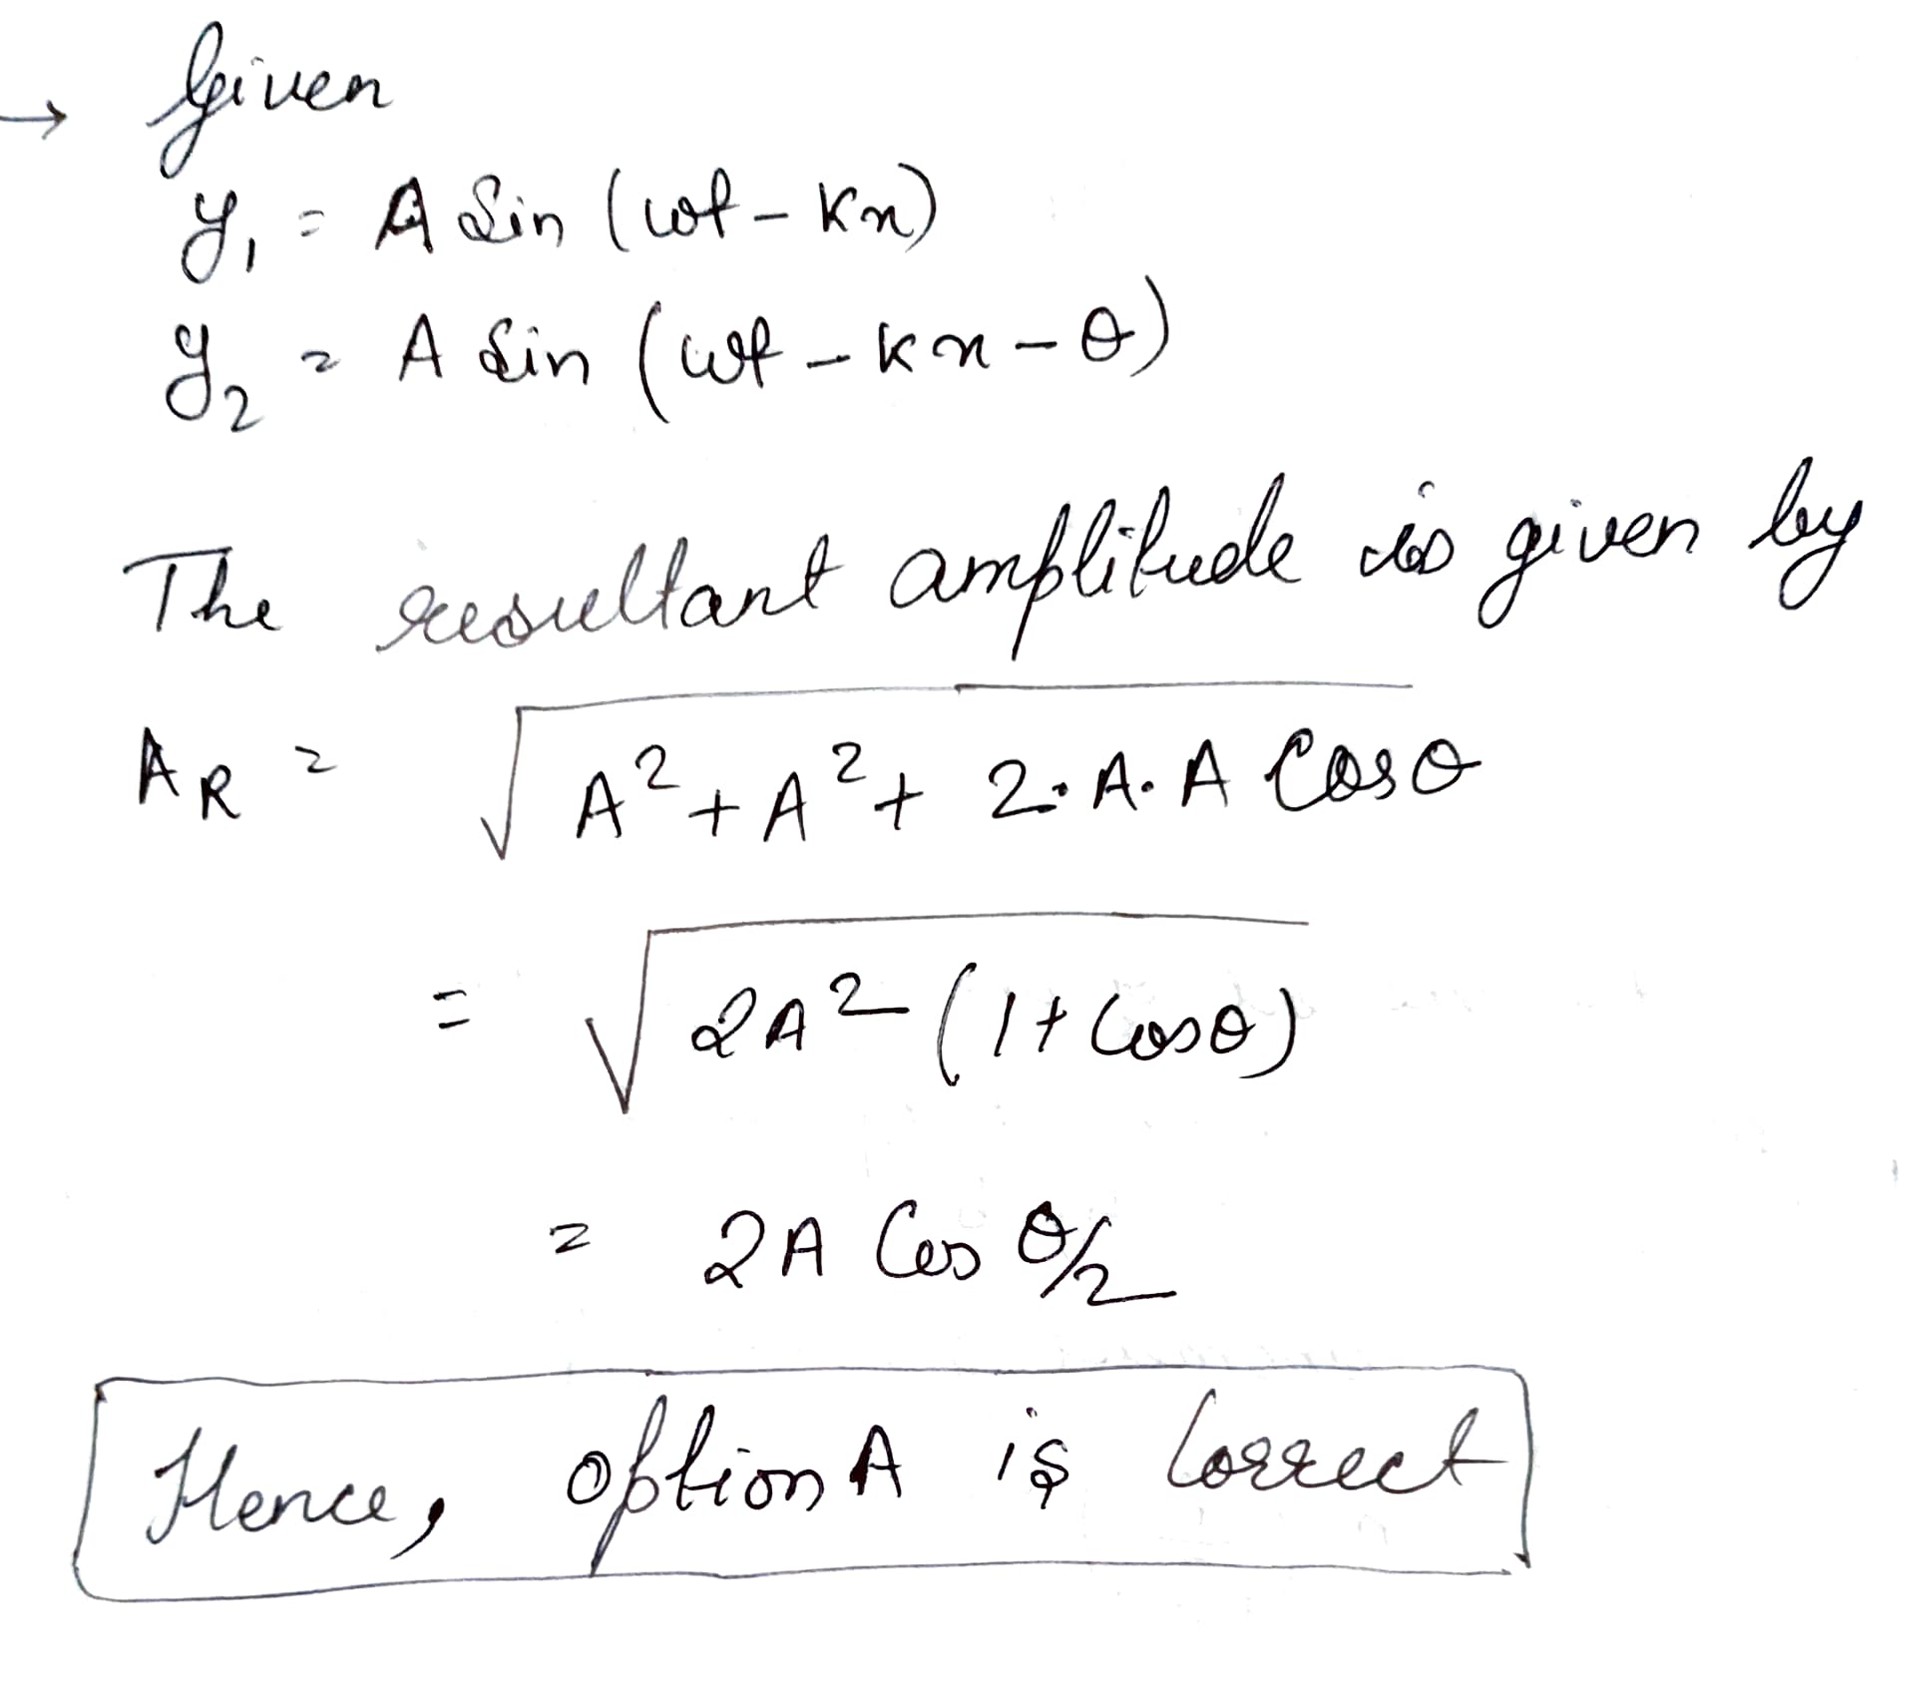 → Given
y₁ = A sin (ωt - kx)
y₂ = A sin (ωt - kx - θ)
The resultant amplitude is given by
A_R = √(A² + A² + 2·A·A Cosθ)
= √(2A² (1 + Cosθ))
= 2A Cos θ/2
Hence, option A is Correct